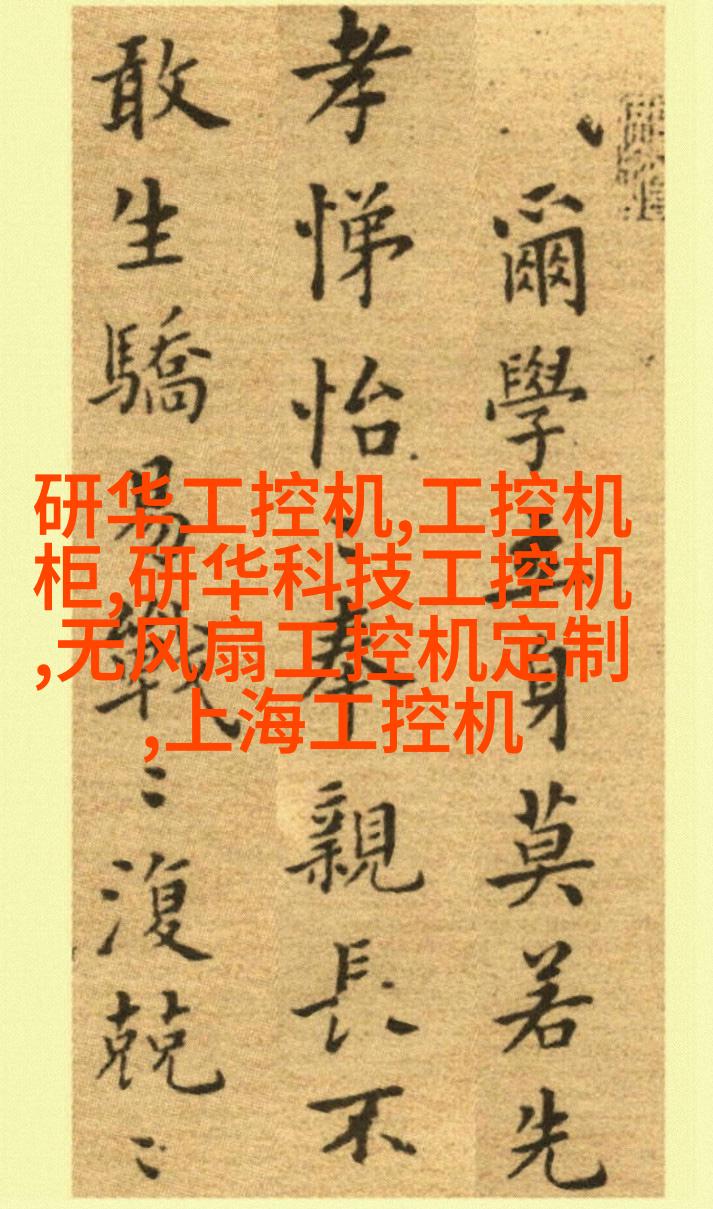 爾學立身莫若先
孝悌怡〻奉親長不
敢生驕易戰〻復兢〻
研华工控机,工控机
柜,研华科技工控机
,无风扇工控机定制
,上海工控机